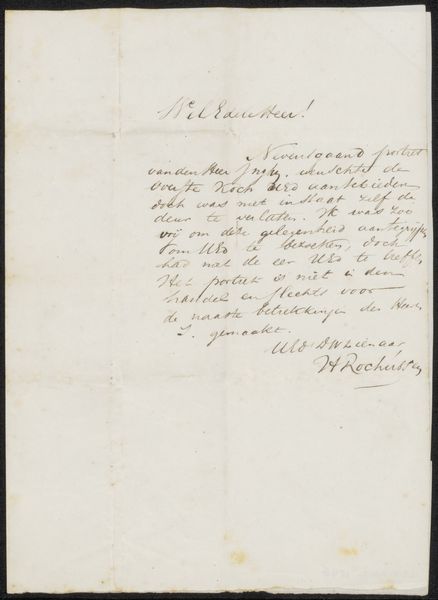 Wel Edele Heer!
Nevensgaand portret
van den Heer wenschte de
overste Koch UEd aan te bieden
doch was niet in staat zelf de
deur te verlaten. Ik was zoo
vrij om deze gelegenheid aan te grijpen
om UEd te bezoeken, doch
had niet de eer UEd te treffen.
Het portret is niet in den
handel en slechts voor
de naaste betrekkingen des Heeren
I. gemaakt.
UEd DW Dienaar
Rochussen